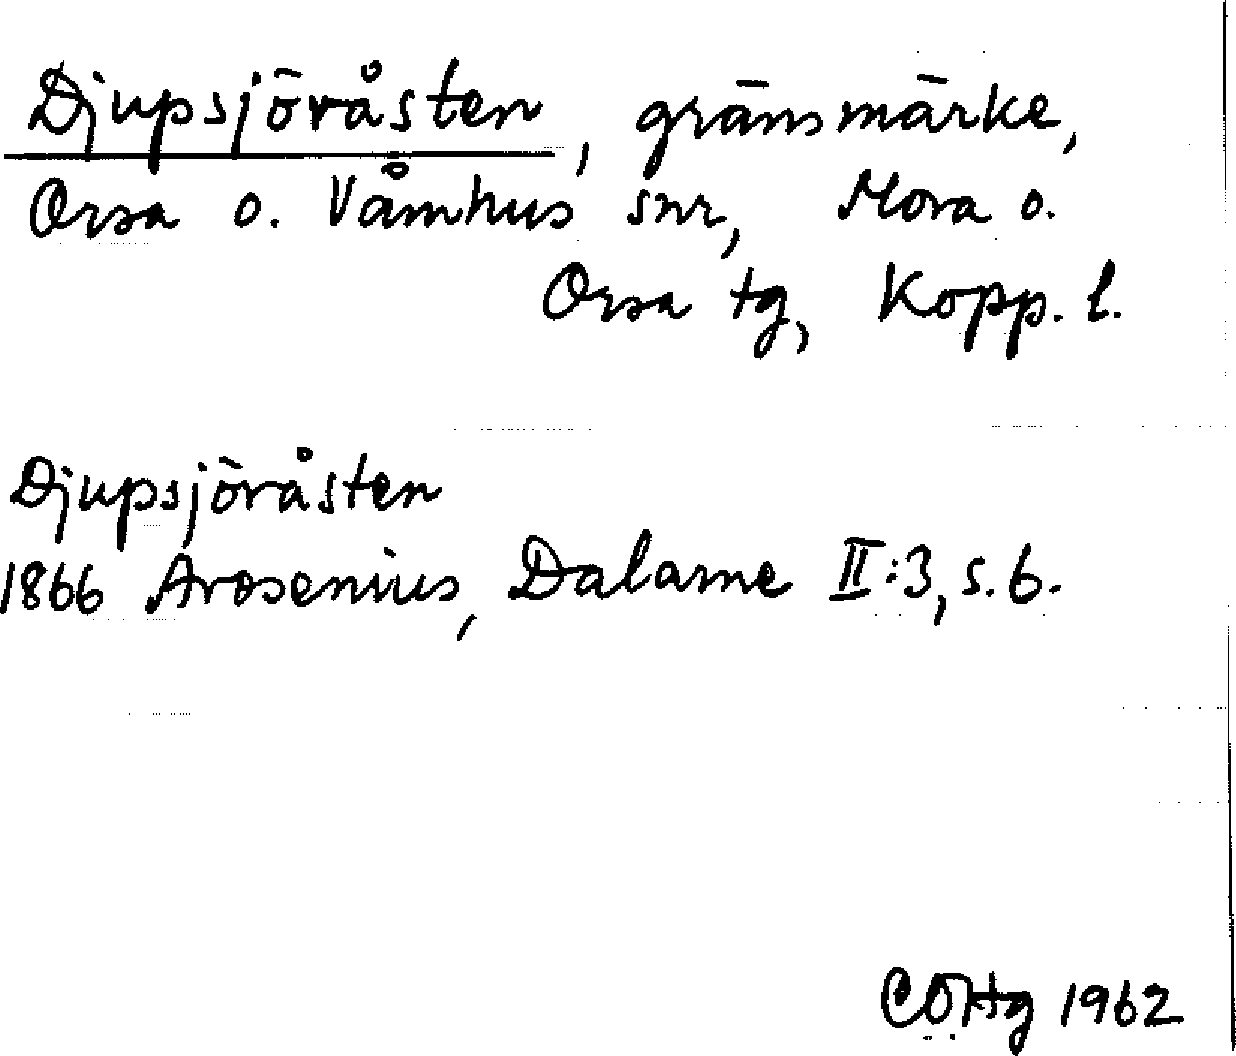 Djupsjöråsten, gränsmärke,
Orsa o. Våmhus snr, Mora o.
Orsa tg, Kopp. l.
Djupsjöråsten
1866 Arosenius, Dalarne II:3, s. 6.
CÖHg 1962